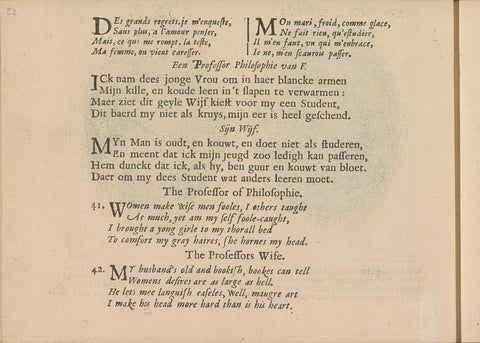 52
DEs grands regrets, je m'enqueste,
Sans plus, a l'amour penser,
Mais, ce qui me rompt, la teste,
Ma femme, on vient caresser.
MOn mari, froid, comme glace,
Ne fait rien, qu'estudier,
Il m'en faut, vn qui m'embrace,
Ie ne, m'en scauroit passer.
Een Professor Philosophie van F.
ICk nam dees jonge Vrou om in haer blancke armen
Mijn kille, en koude leen in't slapen te verwarmen:
Maer ziet dit geyle Wijf kiest voor my een Student,
Dit baerd my niet als kruys, mijn eer is heel geschend.
Sijn Wijf.
MYn Man is oudt, en kouwt, en doet niet als studeren,
En meent dat ick mijn jeugd zoo ledigh kan passeren,
Hem dunckt dat ick, als hy, ben guur en kouwt van bloet.
Daer om my dees Student wat anders leeren moet.
The Professor of Philosophie.
41. WOmen make wise men fooles, I others taught
As much, yet am my self foole-caught,
I brought a yong girle to my thorall bed
To comfort my gray haires, she hornes my head.
The Professors Wife.
42. MY husband's old and bookish, bookes can tell
Womens desires are as large as hell.
He lets mee languish easeles, well, maugre art
I make his head more hard than is his heart.